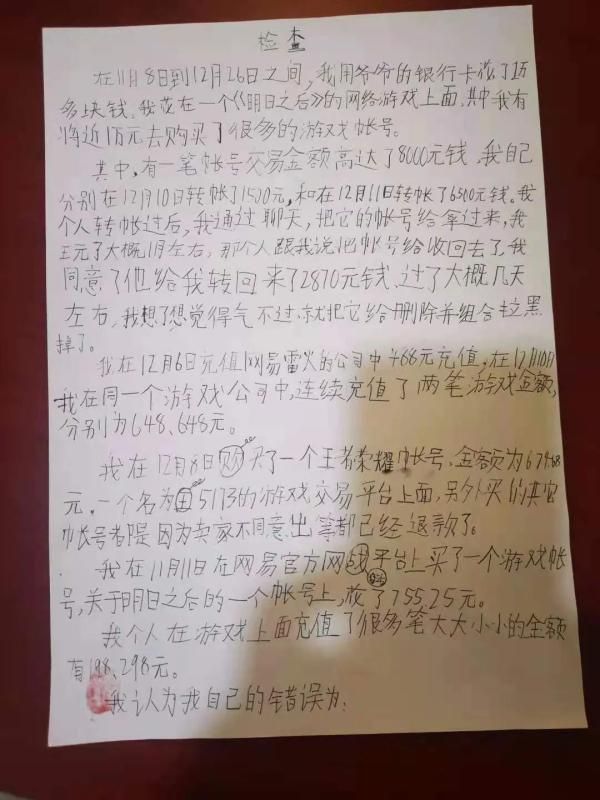 检查
在11月8日到12月26日之间,我用爷爷的银行卡花了1万
多块钱。我花在一个《明日之后》的网络游戏上面,其中我有
将近1万元去购买了很多的游戏帐号。
其中,有一笔帐号交易金额高达了8000元钱,我自己
分别在12月10日转帐了1500元,和在12月11日转帐了6500元钱。我
个人转帐过后,我通过聊天,把它的帐号给拿过来,我
玩了大概1月左右,那个人跟我说把帐号给收回去了,我
同意了他给我转回来了2870元钱,过了大概几天
左右,我想了想觉得气不过,就把它给删除并组合拉黑
掉了。
我在12月6日充值网易雷火的公司中468元充值,在12月10日
我在同一个游戏公司中,连续充值了两笔游戏金额,
分别为648、648元。
我在12月8日购买了一个王者荣耀帐号,金额为679.68
元。一个名为5173的游戏交易平台上面,另外买的其它
帐号都是因为卖家不同意出等都已经退款了。
我在11月11日在网易官方网平台上买了一个游戏帐
号,关于明日之后的一个帐号上,花了755.25元。
我个人在游戏上面充值了很多笔大大小小的金额
有198、298元。
我认为我自己的错误为: